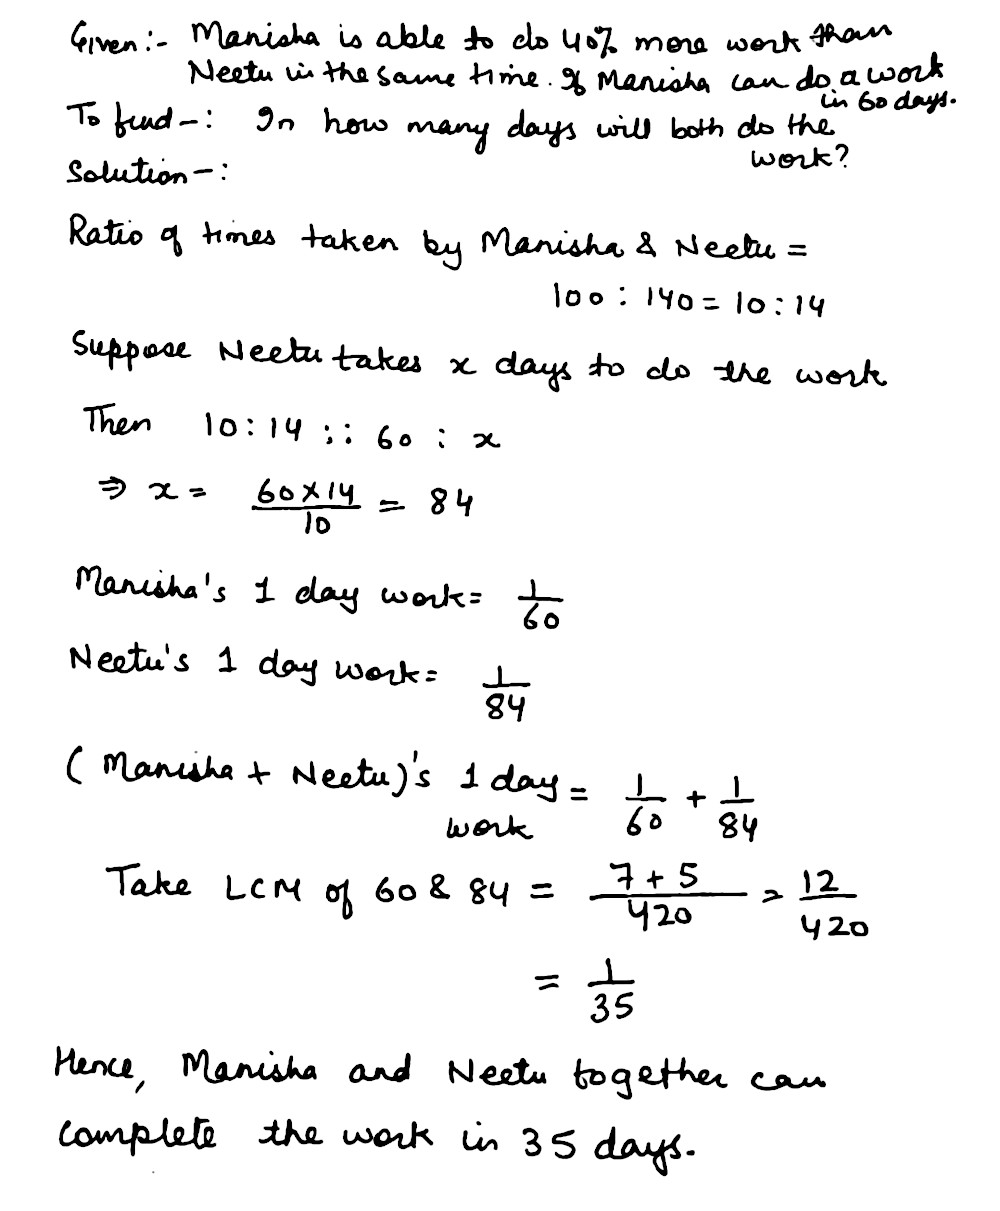 Given :- Manisha is able to do 40% more work than
Neetu in the same time. If Manisha can do a work
in 60 days.
To find -: In how many days will both do the
work?
Solution -:
Ratio of times taken by Manisha & Neetu =
100 : 140 = 10 : 14
Suppose Neetu takes x days to do the work
Then 10 : 14 :: 60 : x
⇒ x = 60×14/10 = 84
Manisha's 1 day work = 1/60
Neetu's 1 day work = 1/84
(Manisha + Neetu)'s 1 day work = 1/60 + 1/84
Take LCM of 60 & 84 = 7+5/420 = 12/420
= 1/35
Hence, Manisha and Neetu together can
complete the work in 35 days.